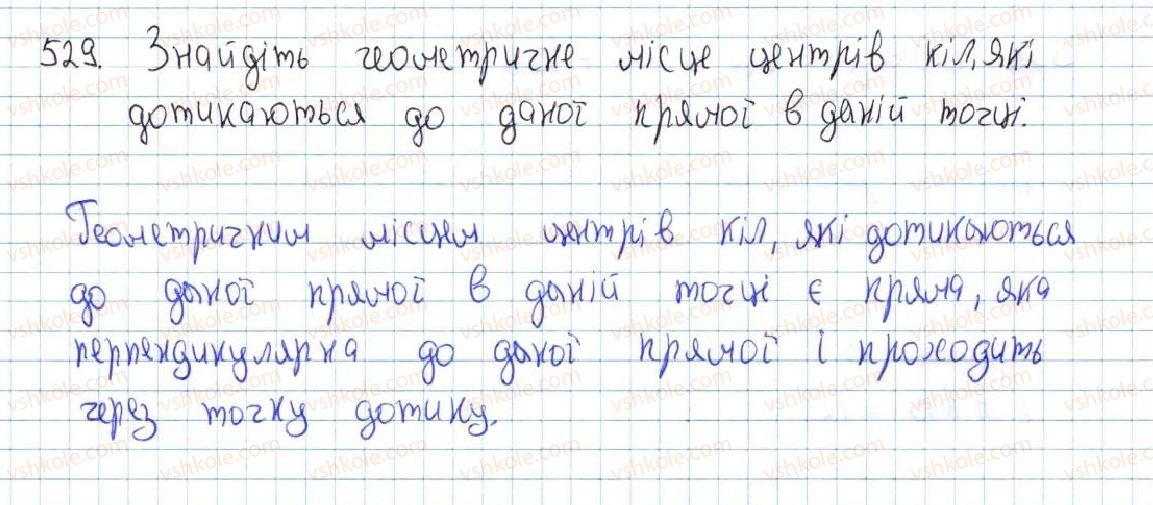 529. Знайдіть геометричне місце центрів кіл, які
дотикаються до даної прямої в даній точці.
Геометричним місцем центрів кіл, які дотикаються
до даної прямої в даній точці є пряма, яка
перпендикулярна до даної прямої і проходить
через точку дотику.